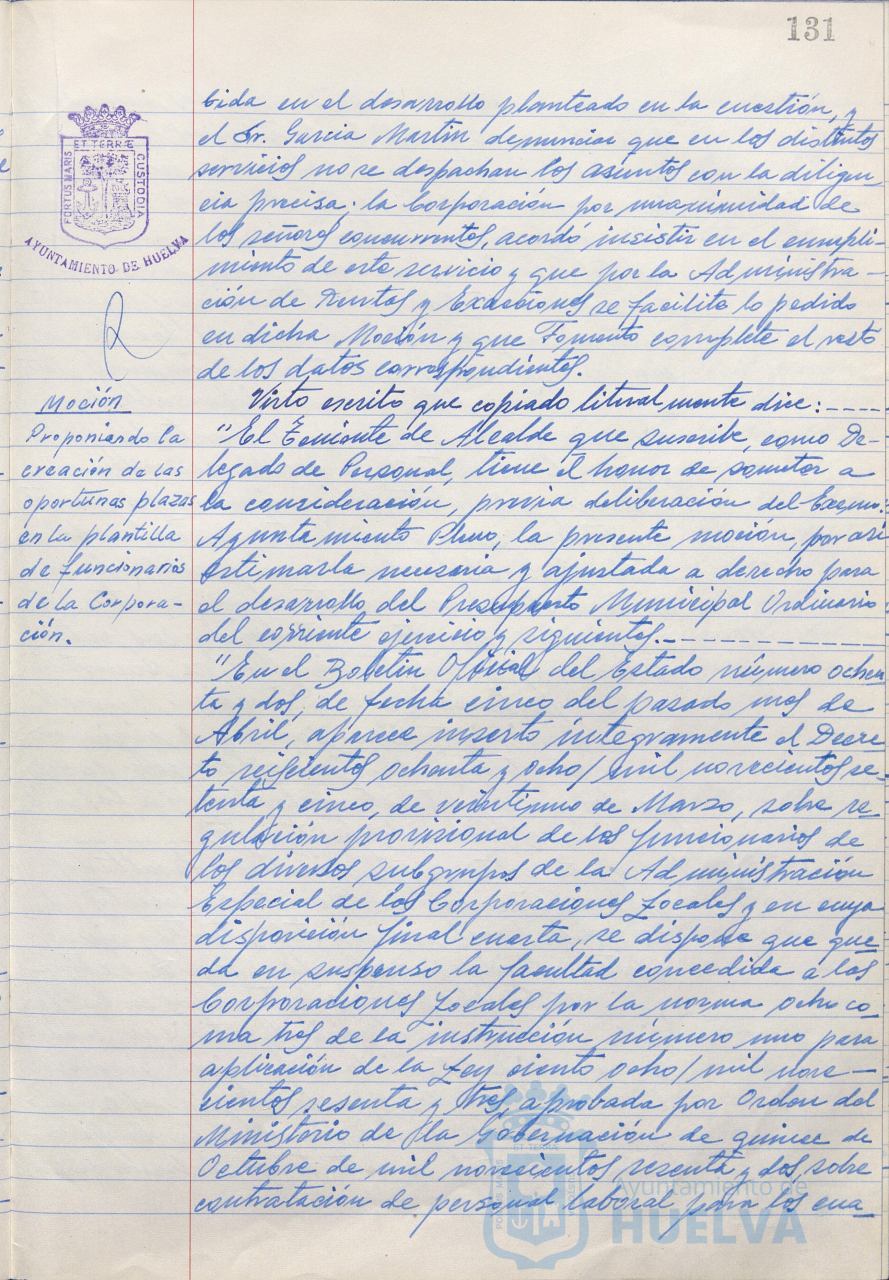 131
PORTUS MARIS
ET TERRÆ
CUSTODIA
AYUNTAMIENTO DE HUELVA
bida en el desarrollo planteado en la cuestión, y
el Sr. Garcia Martin denuncia que en los distintos
servicios no se despachan los asuntos con la diligen-
cia precisa; la Corporación por unanimidad de
los señores concurrentes, acordó insistir en el cumpli-
miento de este servicio y que por la Administra-
ción de Rentas y Exacciones se facilite lo pedido
en dicha Moción y que Fomento complete el resto
de los datos correspondientes.
Moción
Proponiendo la
creación de las
oportunas plazas
en la plantilla
de funcionarios
de la Corpora-
ción.
Visto escrito que copiado literalmente dice:----
"El Teniente de Alcalde que suscribe, como De-
legado de Personal, tiene el honor de someter a
la consideración, previa deliberación del Excmo.
Ayuntamiento Pleno, la presente moción, por asi
estimarla necesaria y ajustada a derecho para
el desarrollo del Presupuesto Municipal Ordinario
del corriente ejercicio y siguientes.----------
"En el Boletin Oficial del Estado número ochen
ta y dos, de fecha cinco del pasado mes de
Abril, aparece inserto integramente el Decre
to seiscientos ochenta y ocho/mil novecientos se-
tenta y cinco, de veintiuno de Marzo, sobre re-
gulación provisional de los funcionarios de
los diversos subgrupos de la Administración
Especial de las Corporaciones Locales y en cuya
disposición final cuarta, se dispone que que-
da en suspenso la facultad concedida a las
Corporaciones Locales por la norma ocho co-
ma tres de la instrucción número uno para
aplicación de la Ley ciento ocho/mil nove-
cientos sesenta y tres, aprobada por Orden del
Ministerio de la Gobernación de quince de
Octubre de mil novecientos sesenta y dos, sobre
contratación de personal laboral para los cua-
Ayuntamiento de
HUELVA